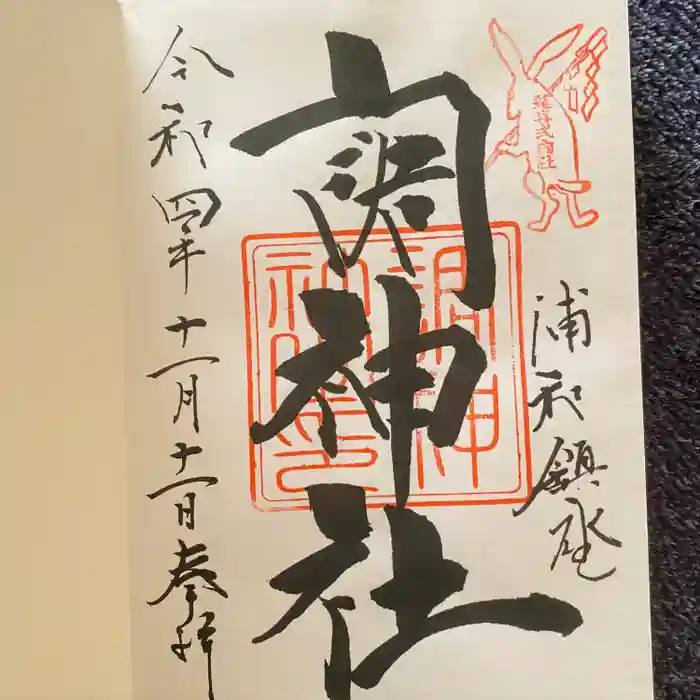 延喜式内社
浦和鎮座
調神社
調神社印
令和四年十一月十一日奉拝